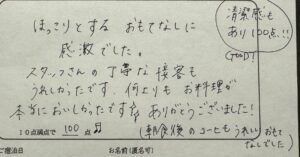 ほっこりとする おもてなしに
感激でした。
スタッフさんの丁寧な接客も
うれしかったです。何よりもお料理が
本当においしかったです。ありがとうございました!
10点満点で 100 点
(朝食後のコーヒもうれしいおもてなしでした)
清潔感も
あり100点!!
GOOD!
ご宿泊日
お名前(匿名可)